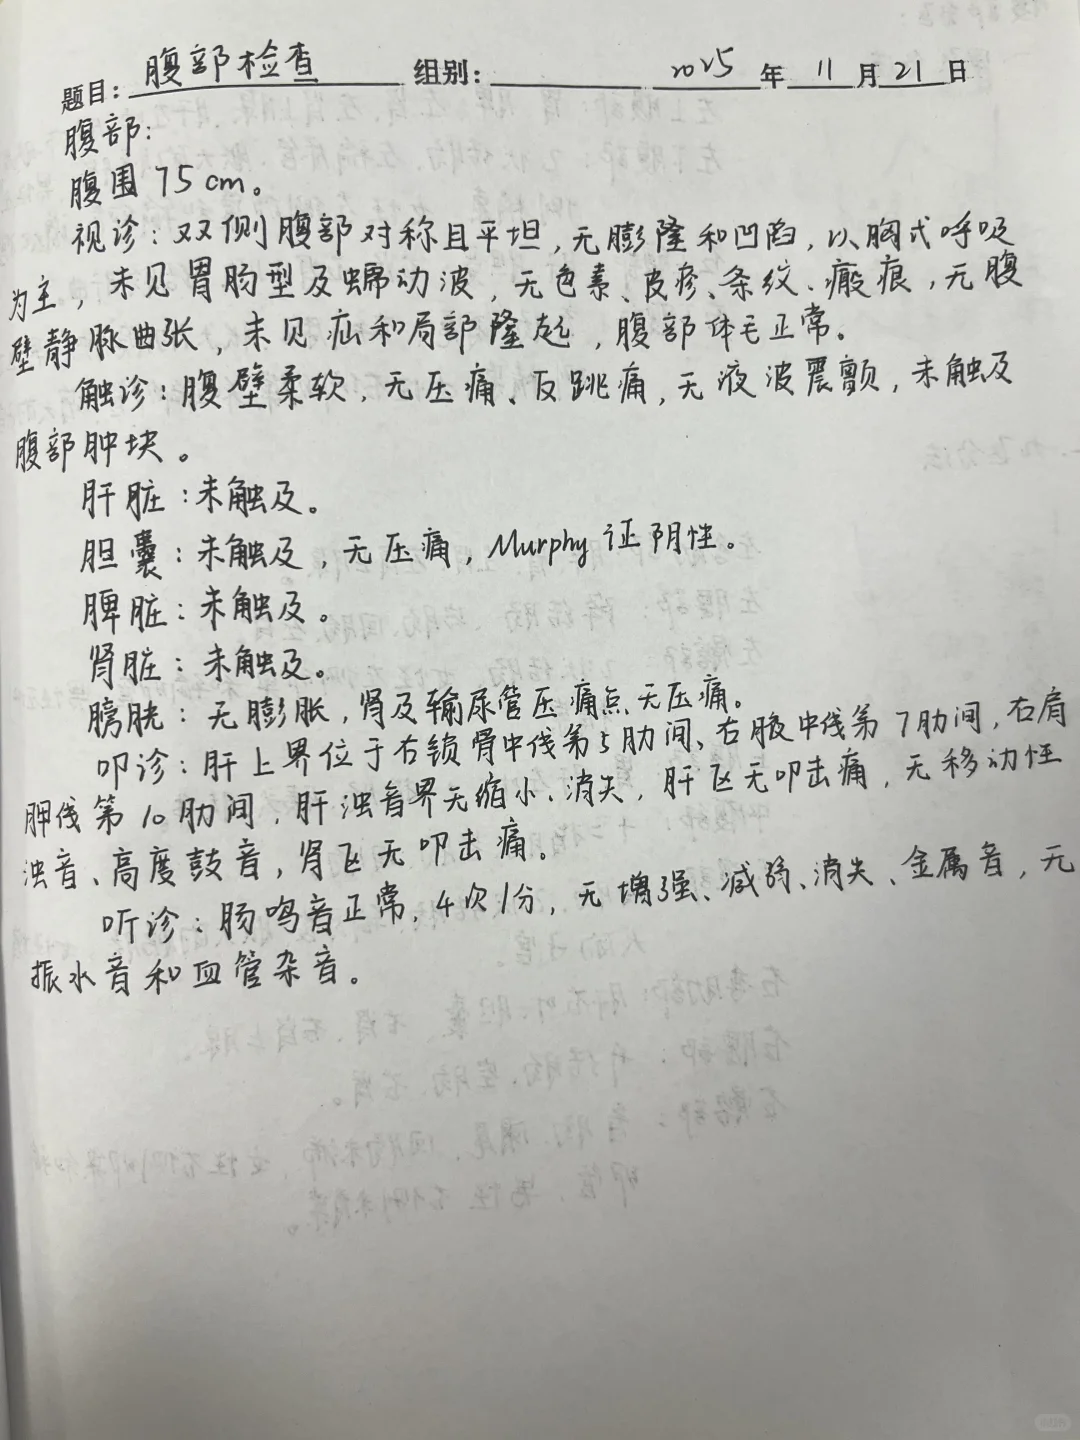 题目: 腹部检查 组别: 2025 年 11 月 21 日
腹部:
腹围 75cm。
视诊: 双侧腹部对称且平坦, 无膨隆和凹陷, 以胸式呼吸
为主, 未见胃肠型及蠕动波, 无色素、皮疹、条纹、瘢痕, 无腹
壁静脉曲张, 未见疝和局部隆起, 腹部体毛正常。
触诊: 腹壁柔软, 无压痛、反跳痛, 无液波震颤, 未触及
腹部肿块。
肝脏: 未触及。
胆囊: 未触及, 无压痛, Murphy 证阴性。
脾脏: 未触及。
肾脏: 未触及。
膀胱: 无膨胀, 肾及输尿管压痛点无压痛。
叩诊: 肝上界位于右锁骨中线第5肋间、右腋中线第7肋间, 右肩
胛线第10肋间, 肝浊音界无缩小、消失, 肝区无叩击痛, 无移动性
浊音、高度鼓音, 肾区无叩击痛。
听诊: 肠鸣音正常, 4次/分, 无增强、减弱、消失、金属音, 无
振水音和血管杂音。